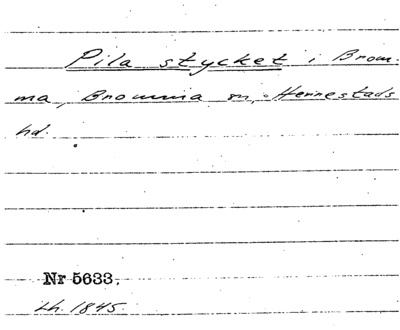 Pila stycket i Brom-
ma, Bromma sn, Herrestads
hd.
Nr 5633.
Lh. 1845.